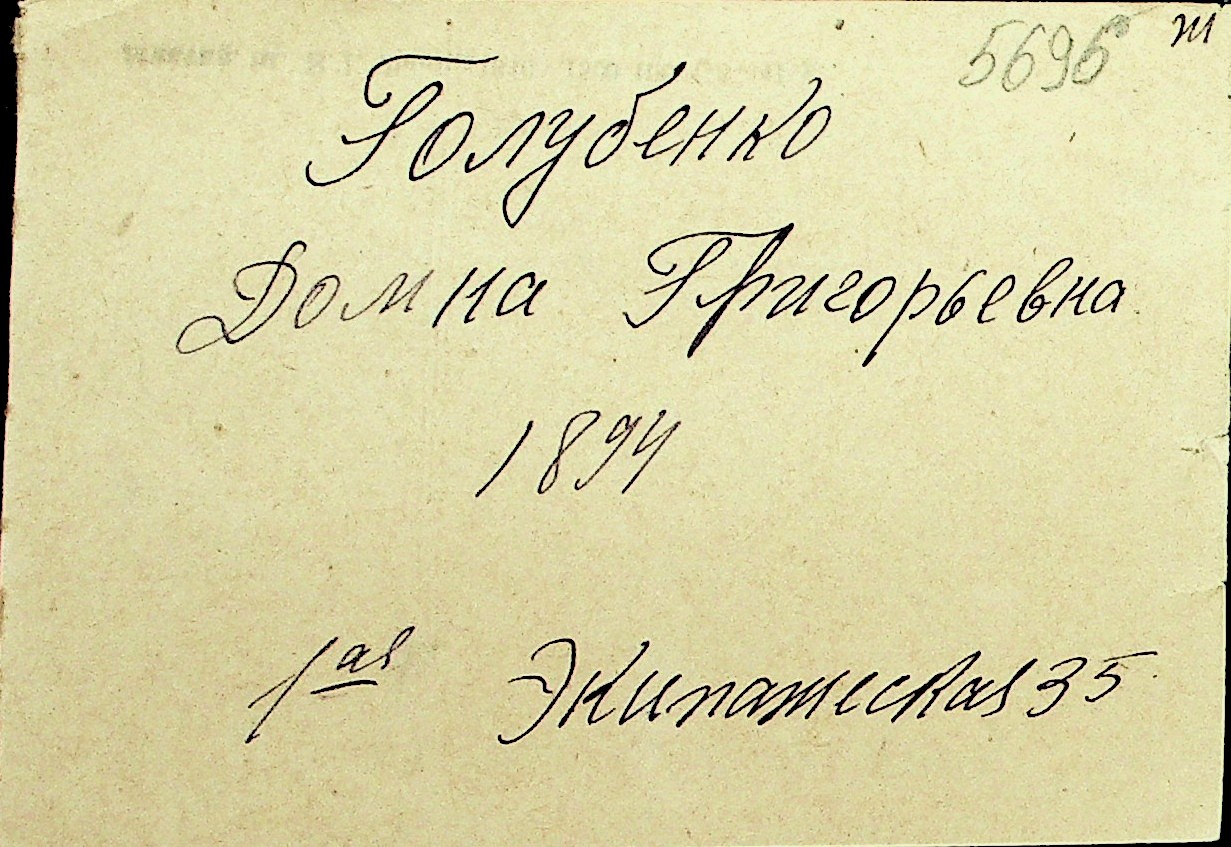 ж
Голубенко
Домна Григорьевна
1894
1ая Экипажеская 35